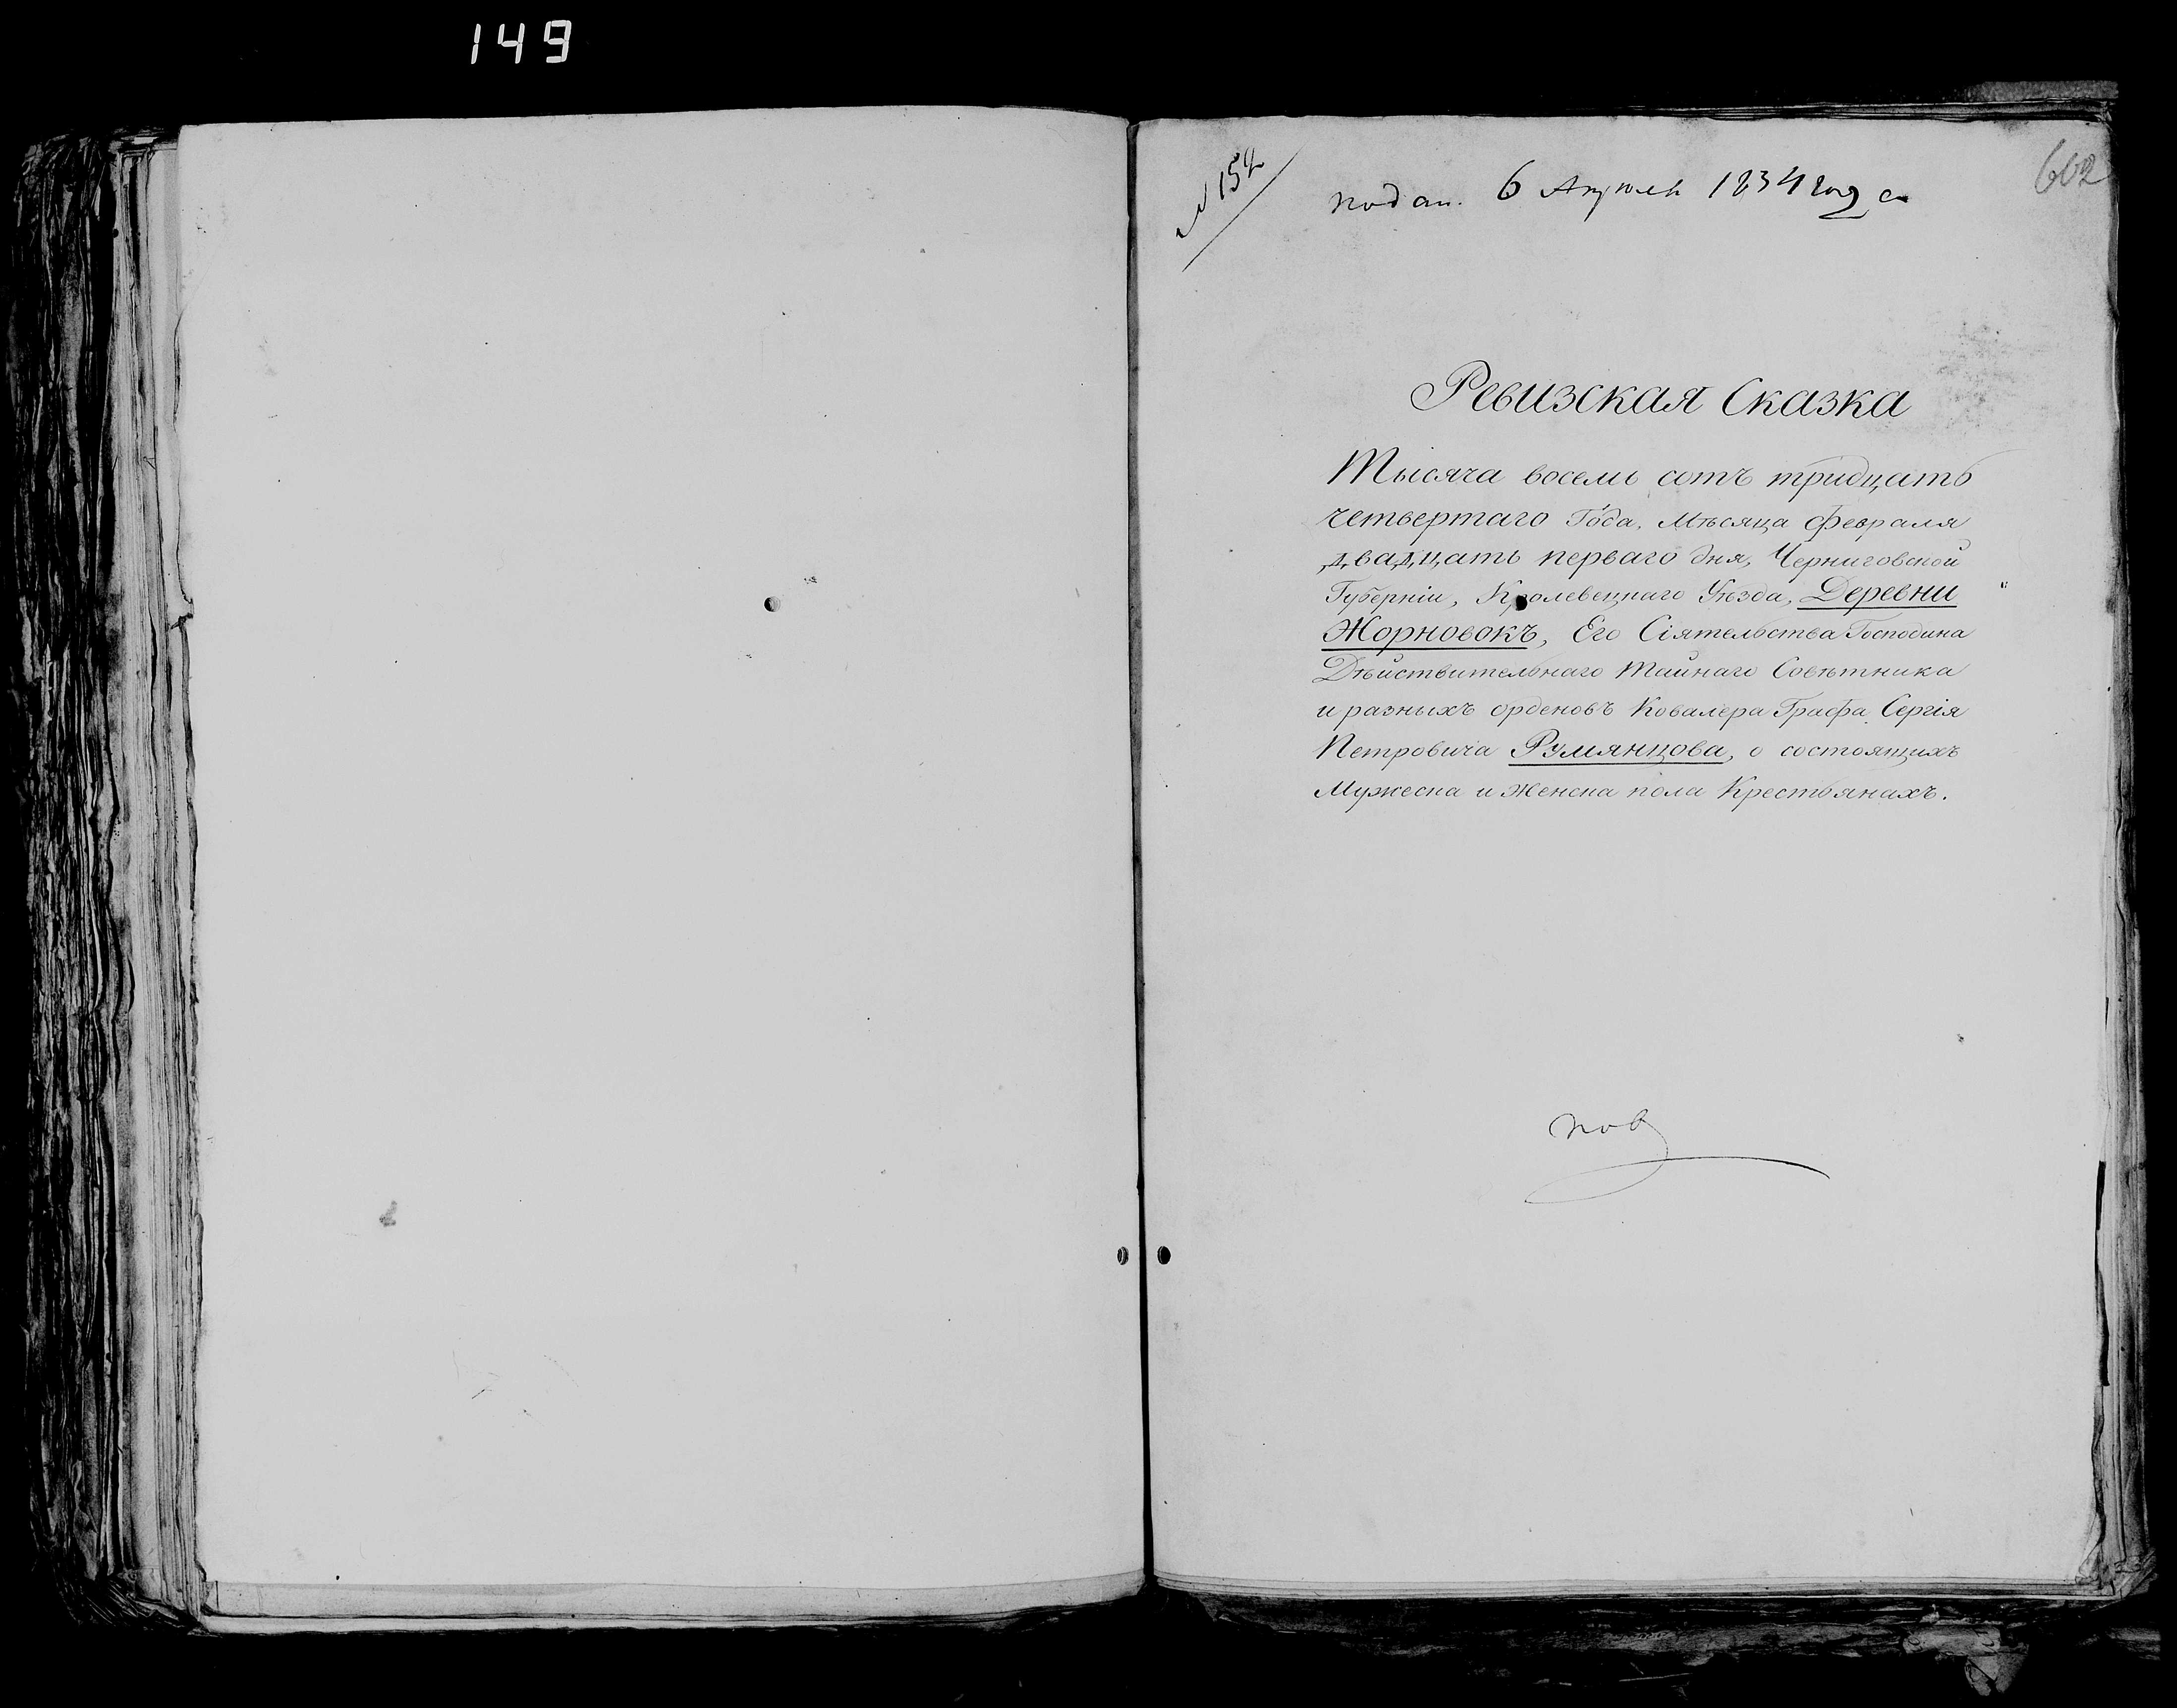 149
№ 152
подан. 6 Апреля 1834 года
602
Ревизская Сказка
Тысяча восемь сотъ тридцать
четвертаго Года, Мѣсяца Февраля
двадцать перваго дня, Черниговской
Губерніи, Кролевецкаго Уѣзда, Деревни
Жорновокъ, Его Сіятельства Господина
Дѣйствительнаго Тайнаго Совѣтника
и разныхъ орденовъ Ковалера Графа Сергія
Петровича Румянцова, о состоящихъ
Мужеска и Женска пола Крестьянахъ.